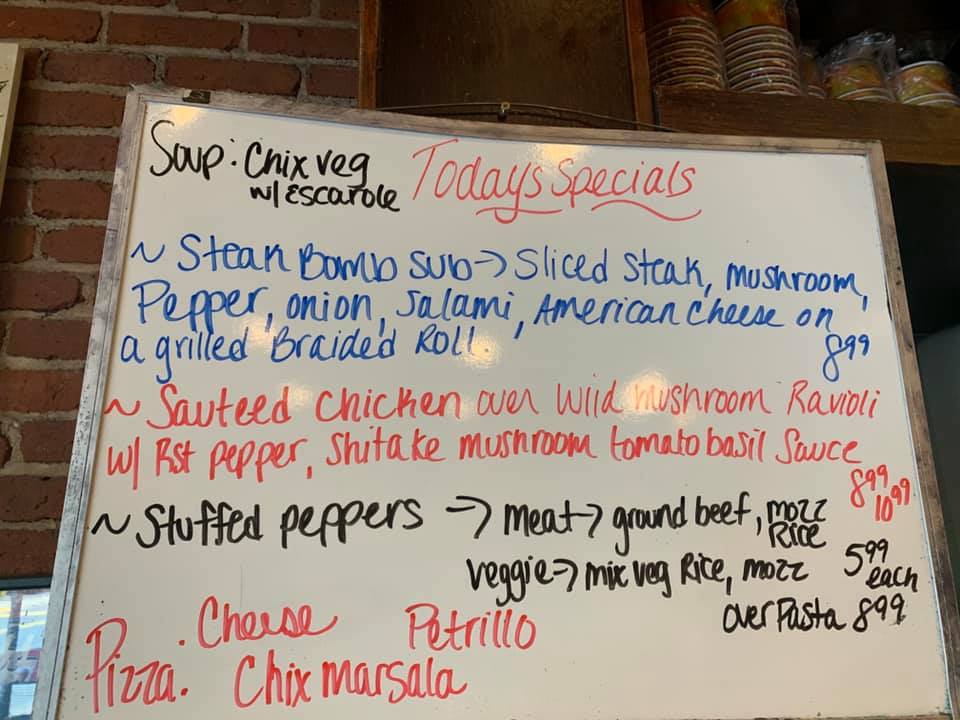 Soup: Chix veg
w/ Escarole
Todays Specials
~ Steak Bomb sub → Sliced Steak, mushroom,
Pepper, onion, Salami, American Cheese on
a grilled Braided Roll. 8.99
~ Sauteed Chicken over Wild mushroom Ravioli
w/ Rst pepper, Shitake mushroom tomato basil Sauce
8.99
10.99
~ Stuffed peppers → meat → ground beef, mozz
Rice
veggie → mix veg Rice, mozz 5.99
each
over Pasta 8.99
Pizza. . Cheese Petrillo
Chix marsala